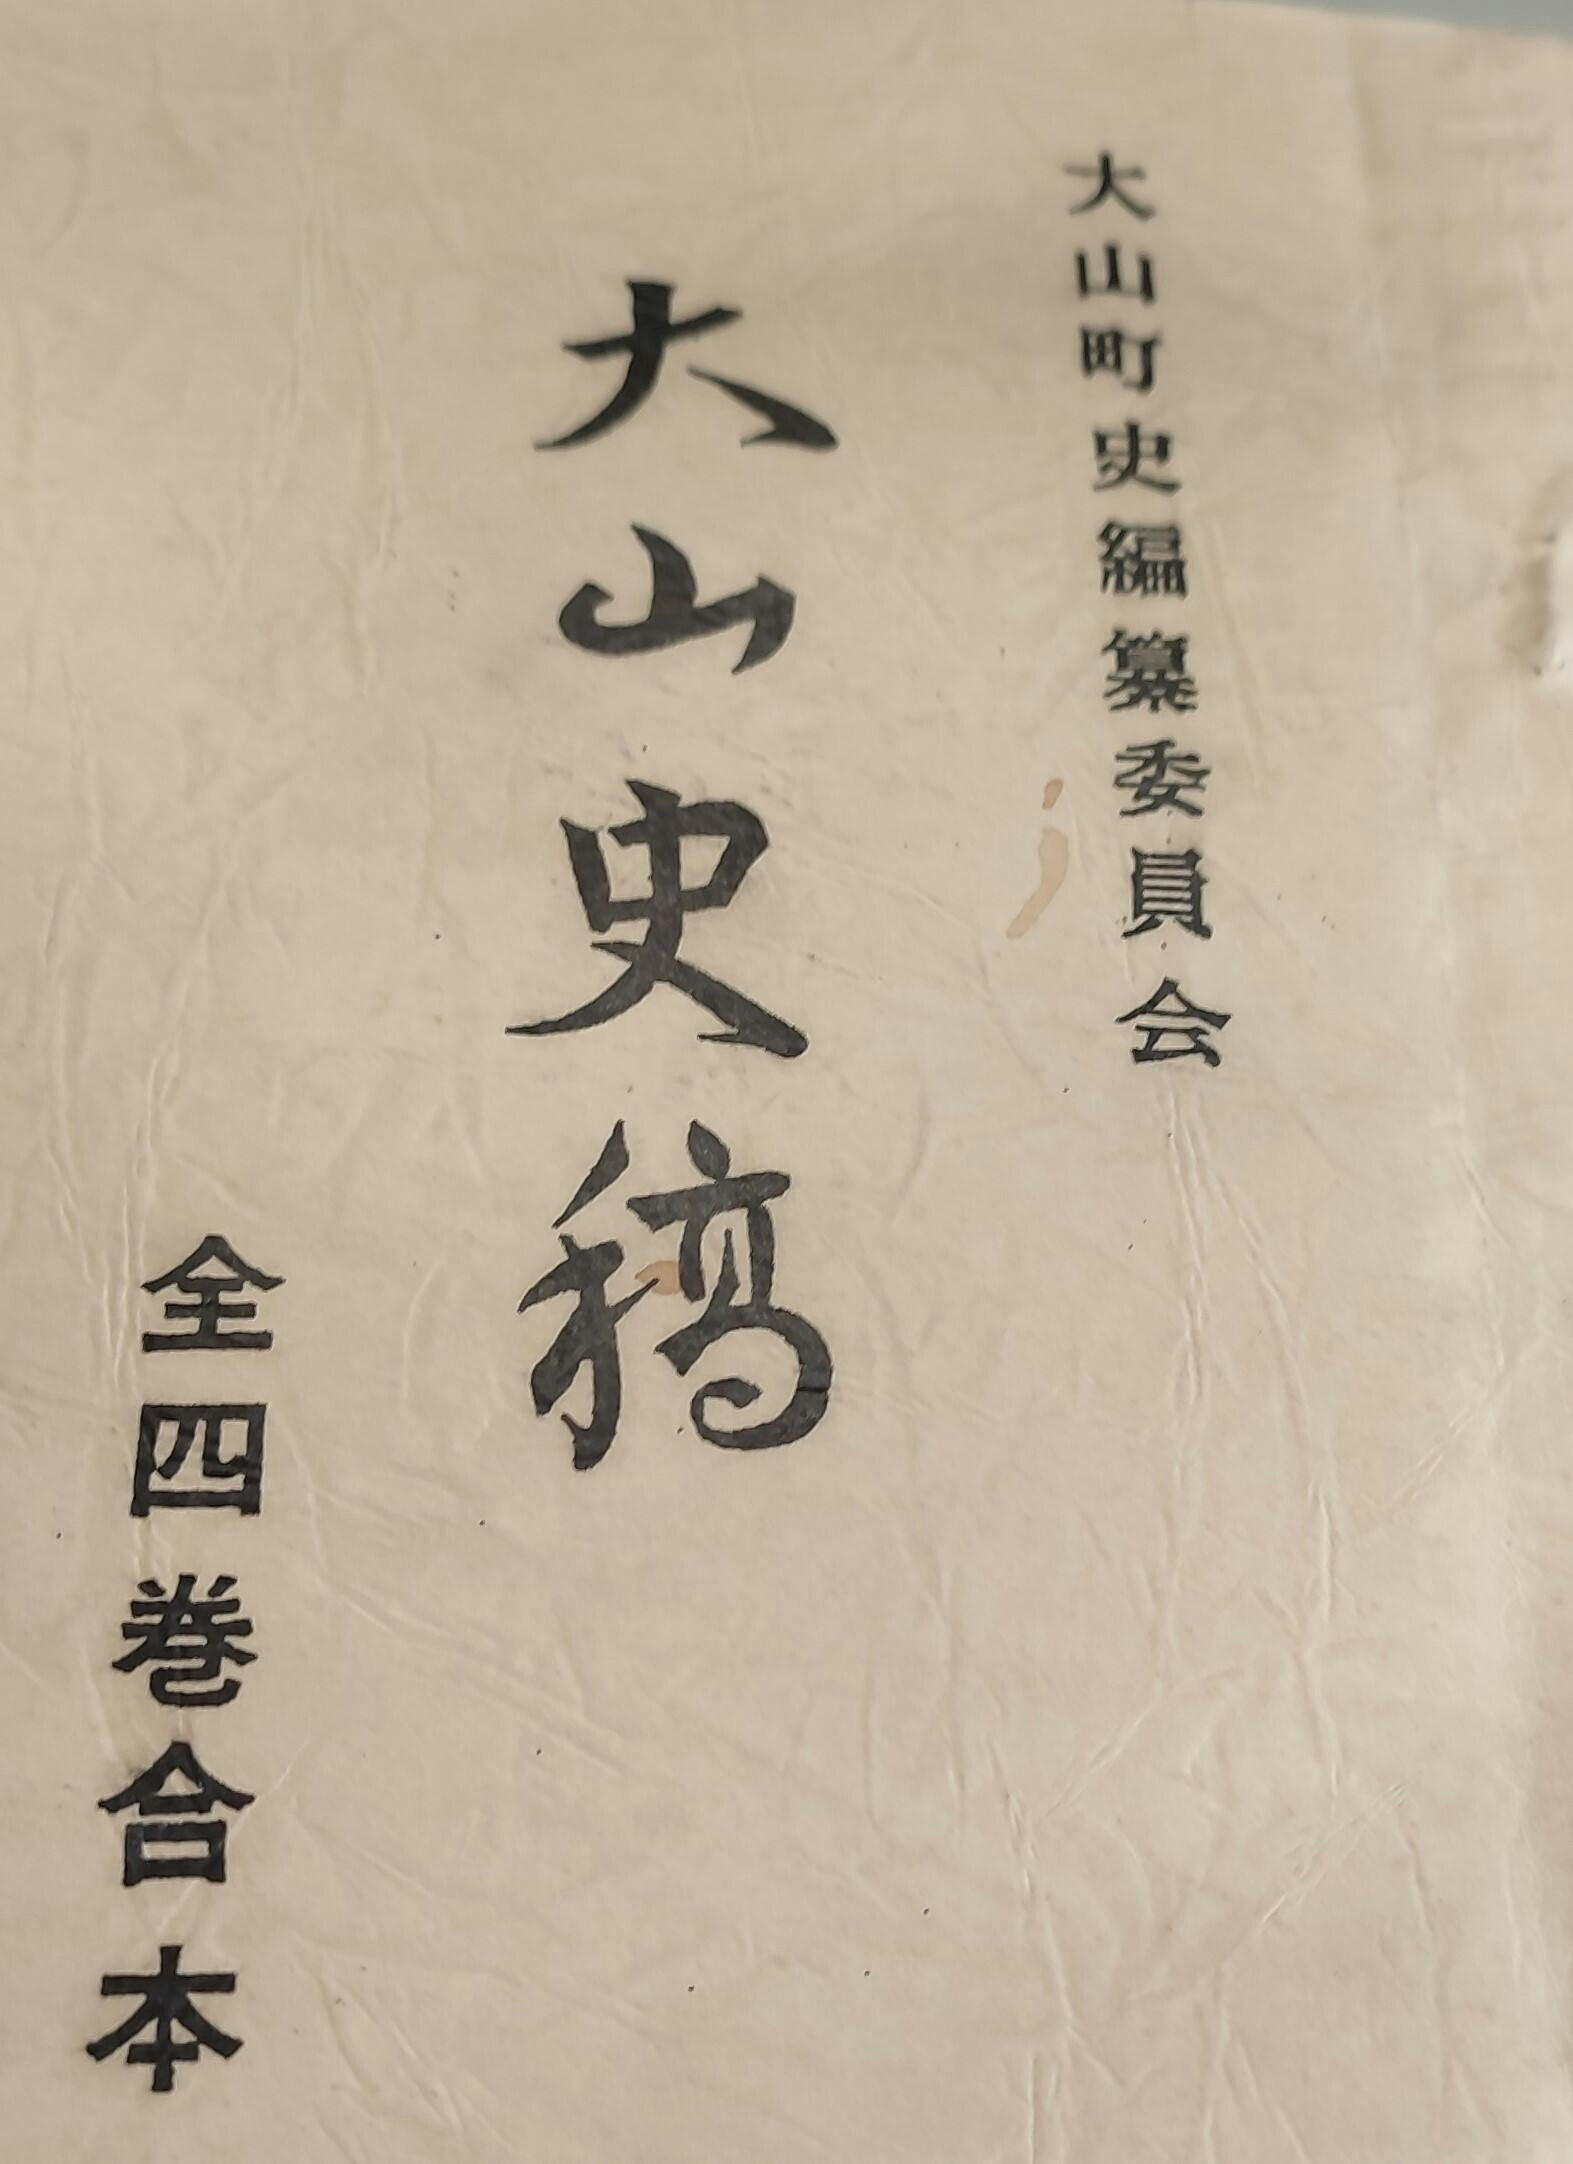 大山町史編纂委員会
大山史稿
全四巻合本